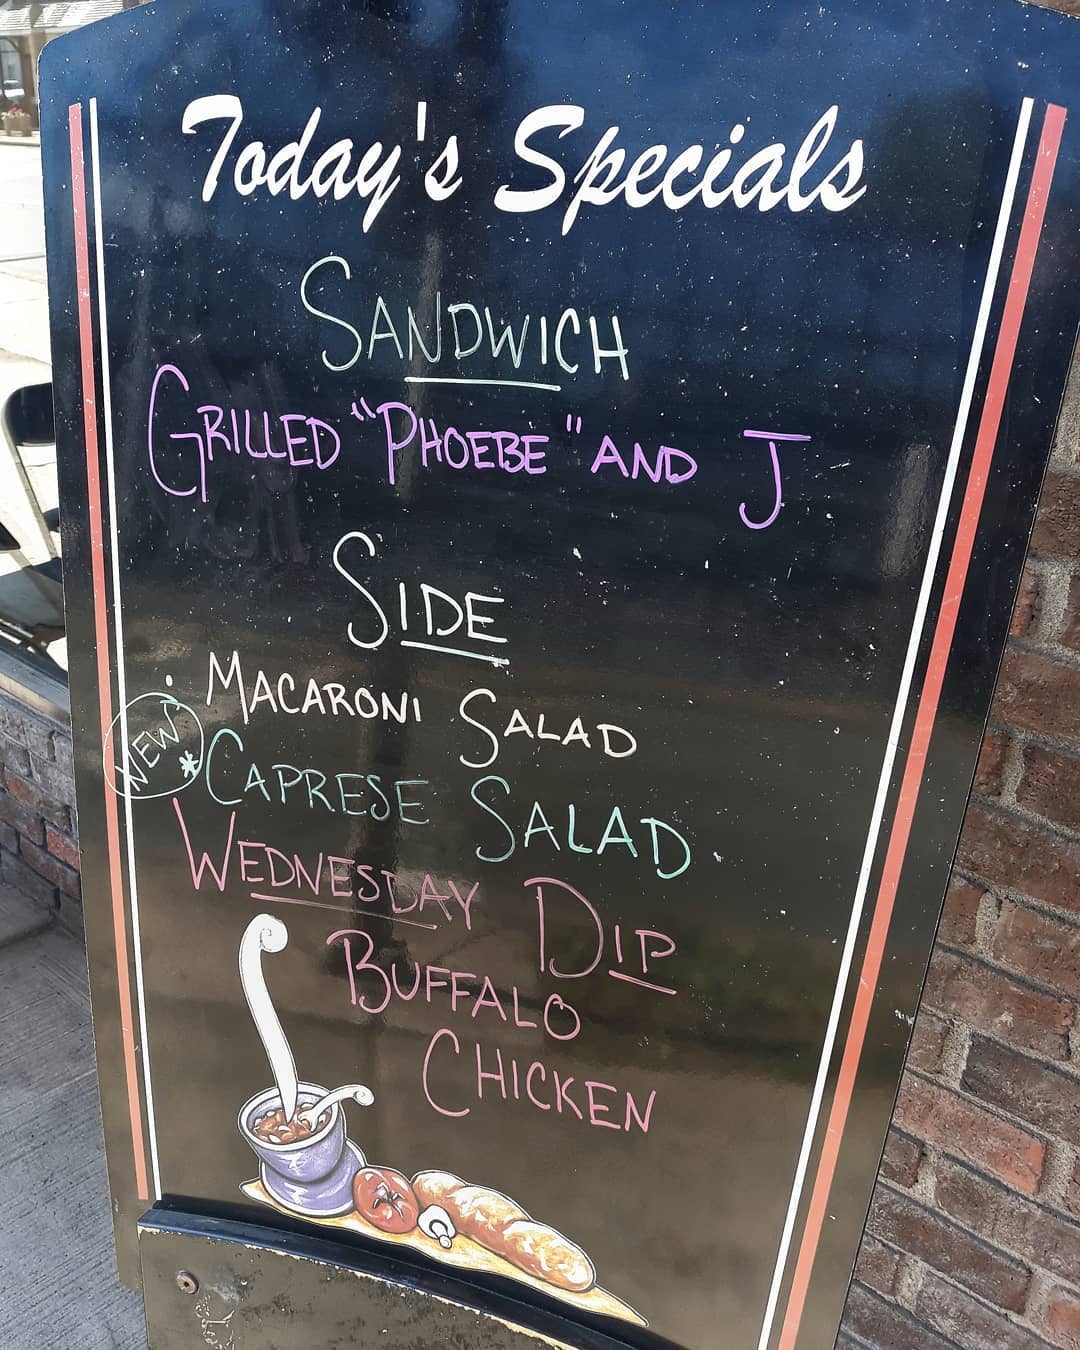 Today's Specials
SANDWICH
GRILLED "PHOEBE" AND J
SIDE
MACARONI SALAD
NEW * CAPRESE SALAD
WEDNESDAY DIP
BUFFALO
CHICKEN